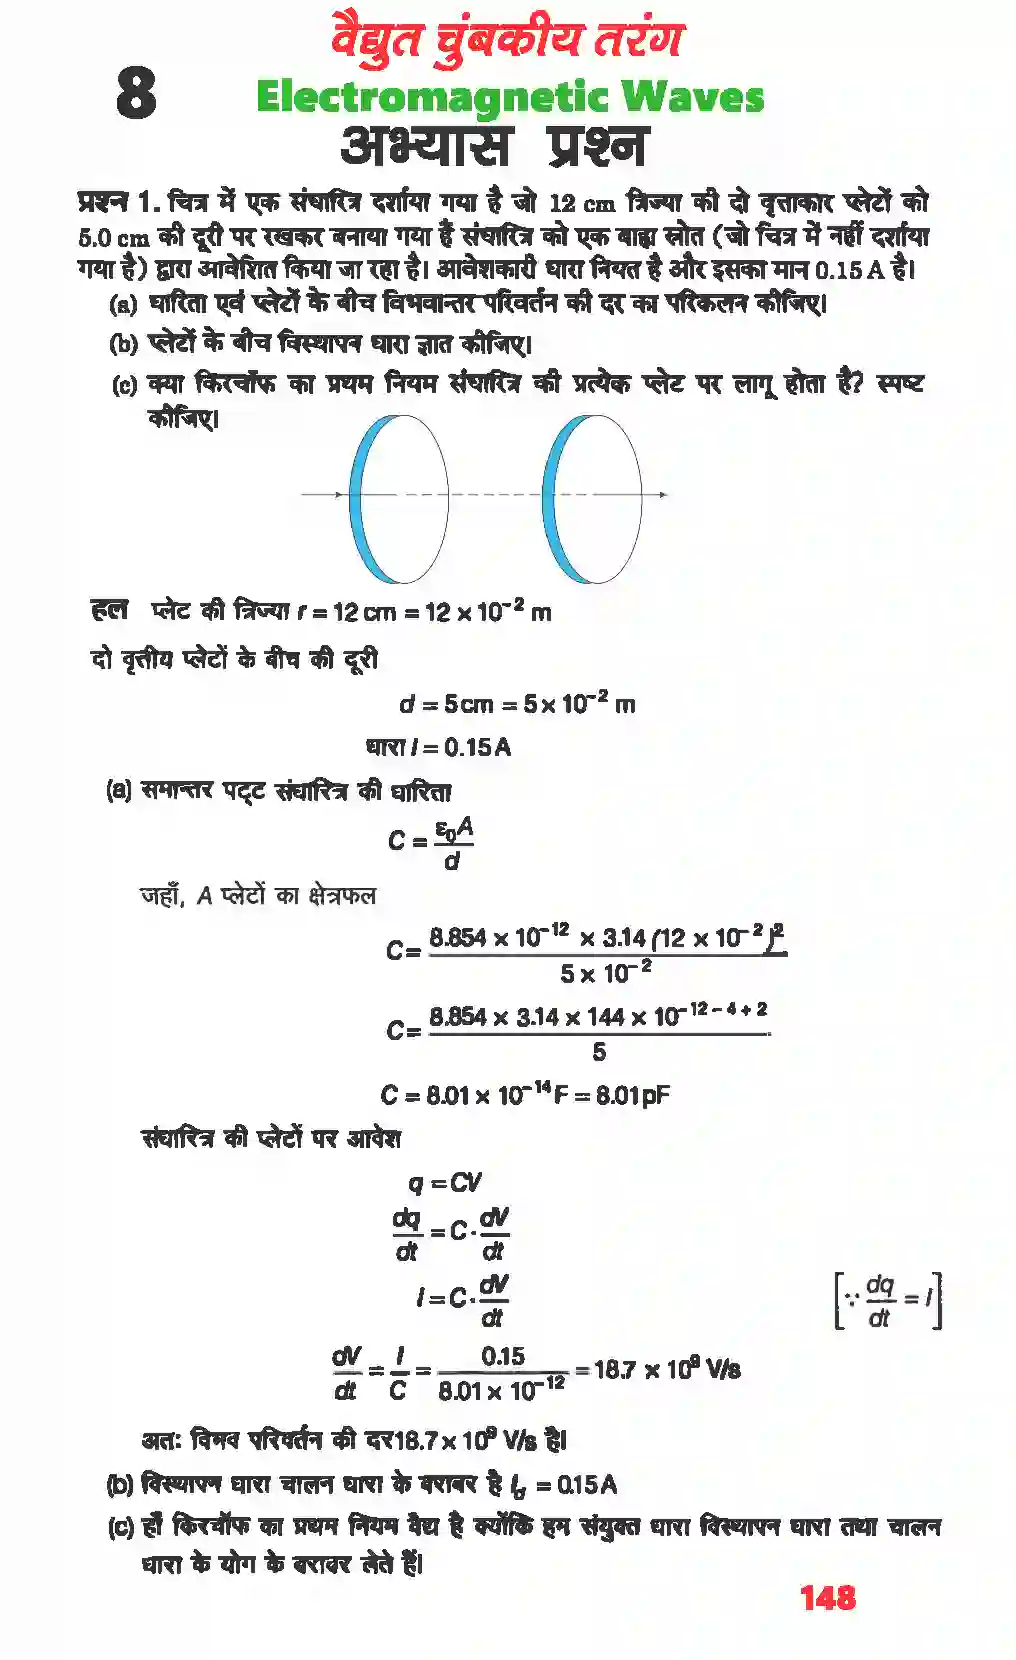 वैद्युत चुंबकीय तरंग
8
Electromagnetic Waves
अभ्यास प्रश्न
प्रश्न 1. चित्र में एक संधारित्र दर्शाया गया है जो 12 cm त्रिज्या की दो वृत्ताकार प्लेटों को
5.0 cm की दूरी पर रखकर बनाया गया हैं संधारित्र को एक बाह्य स्रोत (जो चित्र में नहीं दर्शाया
गया है) द्वारा आवेशित किया जा रहा है। आवेशकारी धारा नियत है और इसका मान 0.15 A है।
(a) धारिता एवं प्लेटों के बीच विभवान्तर परिवर्तन की दर का परिकलन कीजिए।
(b) प्लेटों के बीच विस्थापन धारा ज्ञात कीजिए।
(c) क्या किरचॉफ का प्रथम नियम संधारित्र की प्रत्येक प्लेट पर लागू होता है? स्पष्ट
कीजिए।
हल प्लेट की त्रिज्या r = 12 cm = 12 × 10⁻² m
दो वृत्तीय प्लेटों के बीच की दूरी
d = 5cm = 5 × 10⁻² m
धारा I = 0.15 A
(a) समान्तर पट्ट संधारित्र की धारिता
C = ε₀A / d
जहाँ, A प्लेटों का क्षेत्रफल
C = 8.854 × 10⁻¹² × 3.14 (12 × 10⁻²)² / 5 × 10⁻²
C = 8.854 × 3.14 × 144 × 10⁻¹²⁻⁴⁺² / 5
C = 8.01 × 10⁻¹⁴ F = 8.01 pF
संधारित्र की प्लेटों पर आवेश
q = CV
dq/dt = C · dV/dt
I = C · dV/dt [∵ dq/dt = I]
dV/dt = I/C = 0.15 / 8.01 × 10⁻¹² = 18.7 × 10⁹ V/s
अतः विभव परिवर्तन की दर 18.7 × 10⁹ V/s है।
(b) विस्थापन धारा चालन धारा के बराबर है I_d = 0.15 A
(c) हाँ किरचॉफ का प्रथम नियम वैद्य है क्योंकि हम संयुक्त धारा विस्थापन धारा तथा चालन
धारा के योग के बराबर लेते हैं।
148